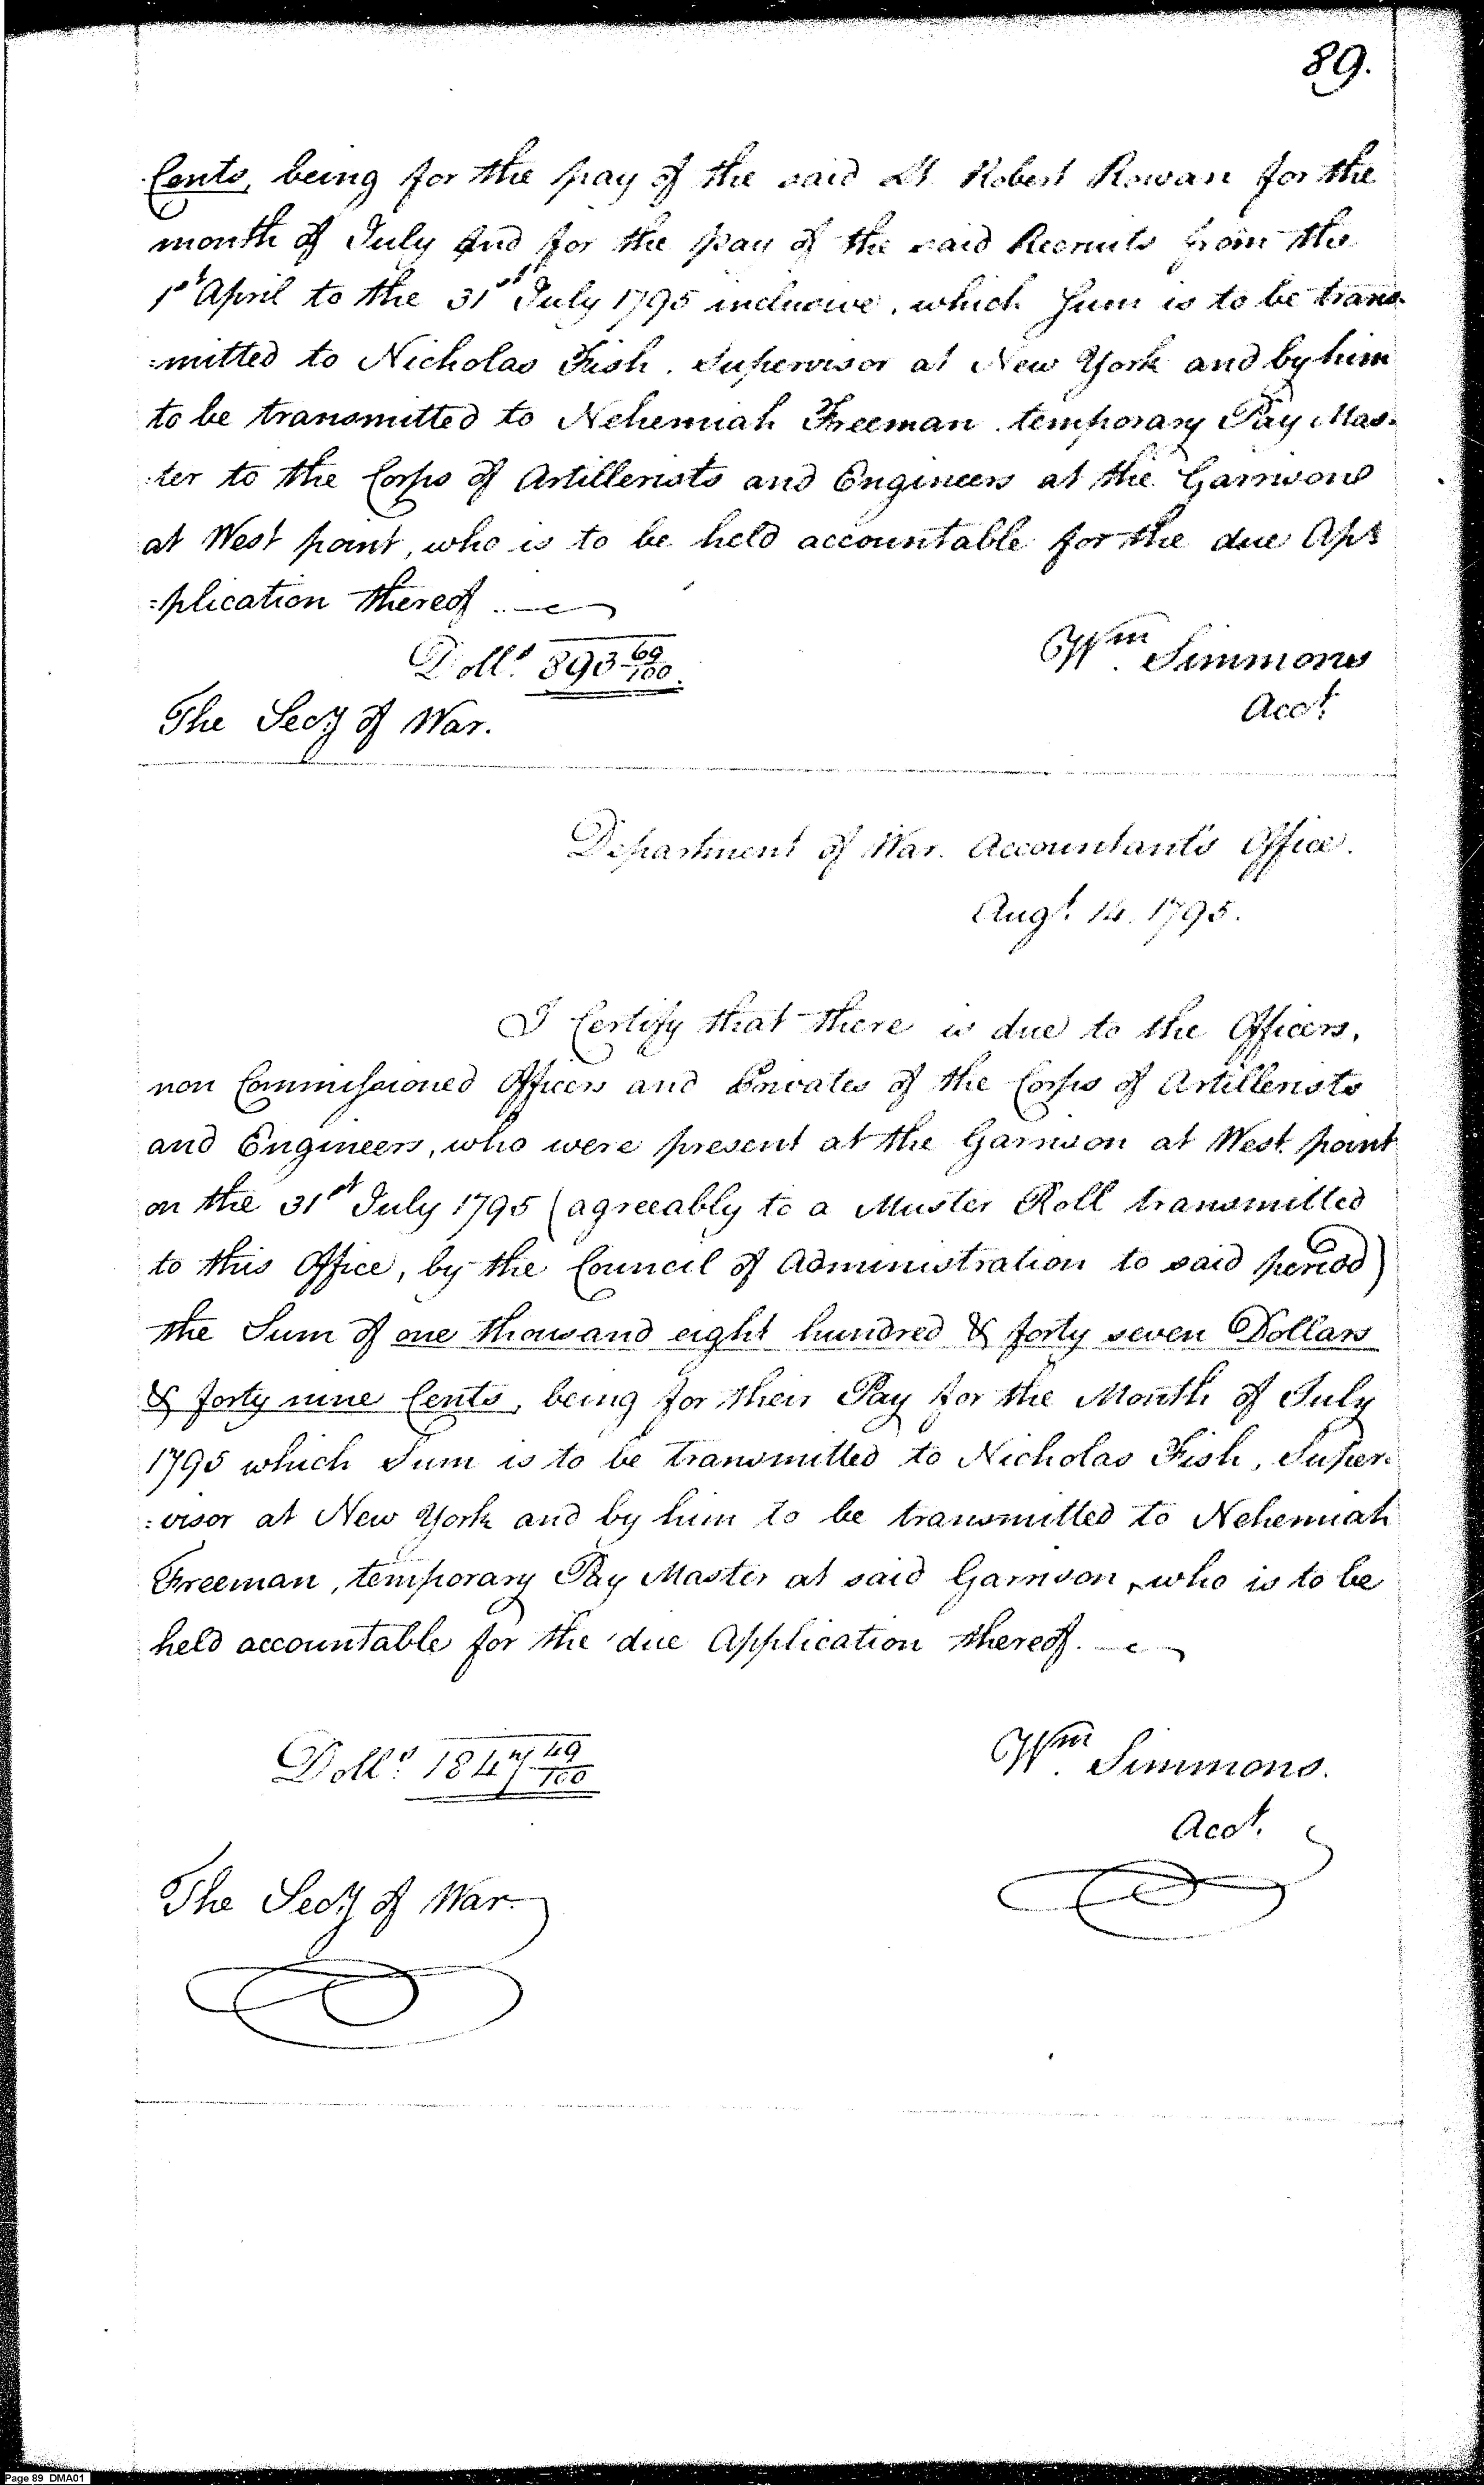 89.
Cents, being for the pay of the said Lt. Robert Rowan for the
month of July and for the pay of the said Recruits from the
1st April to the 31st July 1795 inclusive, which Sum is to be trans-
:mitted to Nicholas Fish. Supervisor at New York and by him
to be transmitted to Nehemiah Freeman temporary Pay Mas-
:ter to the Corps of Artillerists and Engineers at the Garrison
at West point, who is to be held accountable for the due Ap=
=plication thereof.
Dolls. 893 69/100.
Wm. Simmons
Acct.
The Secy of War.
Department of War. Accountant's Office.
Augt. 14. 1795.
I Certify that there is due to the Officers,
non Commissioned Officers and Privates of the Corps of Artillerists
and Engineers, who were present at the Garrison at West point
on the 31st July 1795 (agreeably to a Muster Roll transmitted
to this Office, by the Council of Administration to said period)
the Sum of one thousand eight hundred & forty seven Dollars
& forty nine Cents, being for their Pay for the Month of July
1795 which Sum is to be transmitted to Nicholas Fish, Super-
:visor at New York and by him to be transmitted to Nehemiah
Freeman, temporary Pay Master at said Garrison, who is to be
held accountable for the due Application thereof.
Dolls. 1847 49/100
Wm. Simmons.
Acct.
The Secy of War.
Page 89 DMA01